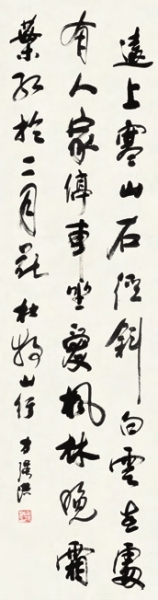 遠上寒山石徑斜白雲生處
有人家停車坐愛楓林晚霜
葉紅於二月花杜牧山行